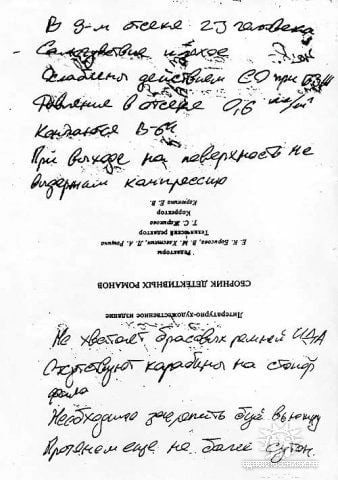 В 9-м отсеке 23 человека
Самочувствие плохое
Ослаблены действием СО при
Давление в отсеке 0,6 кг/м²
Кончаются В-64
При выходе на поверхность не
выдержим компрессию
Литературно-художественное издание
СБОРНИК ДЕТЕКТИВНЫХ РОМАНОВ
Редакторы
Е. К. Борисова, В. М. Л. А. Рощина
Технический редактор
Т. С. Жарикова
Корректор
Е. В.
Не хватает брасовых ремней ИДА
Отсутствуют карабины на стопор
фала
Необходимо закрепить вьюшку
Протянем еще не более суток.